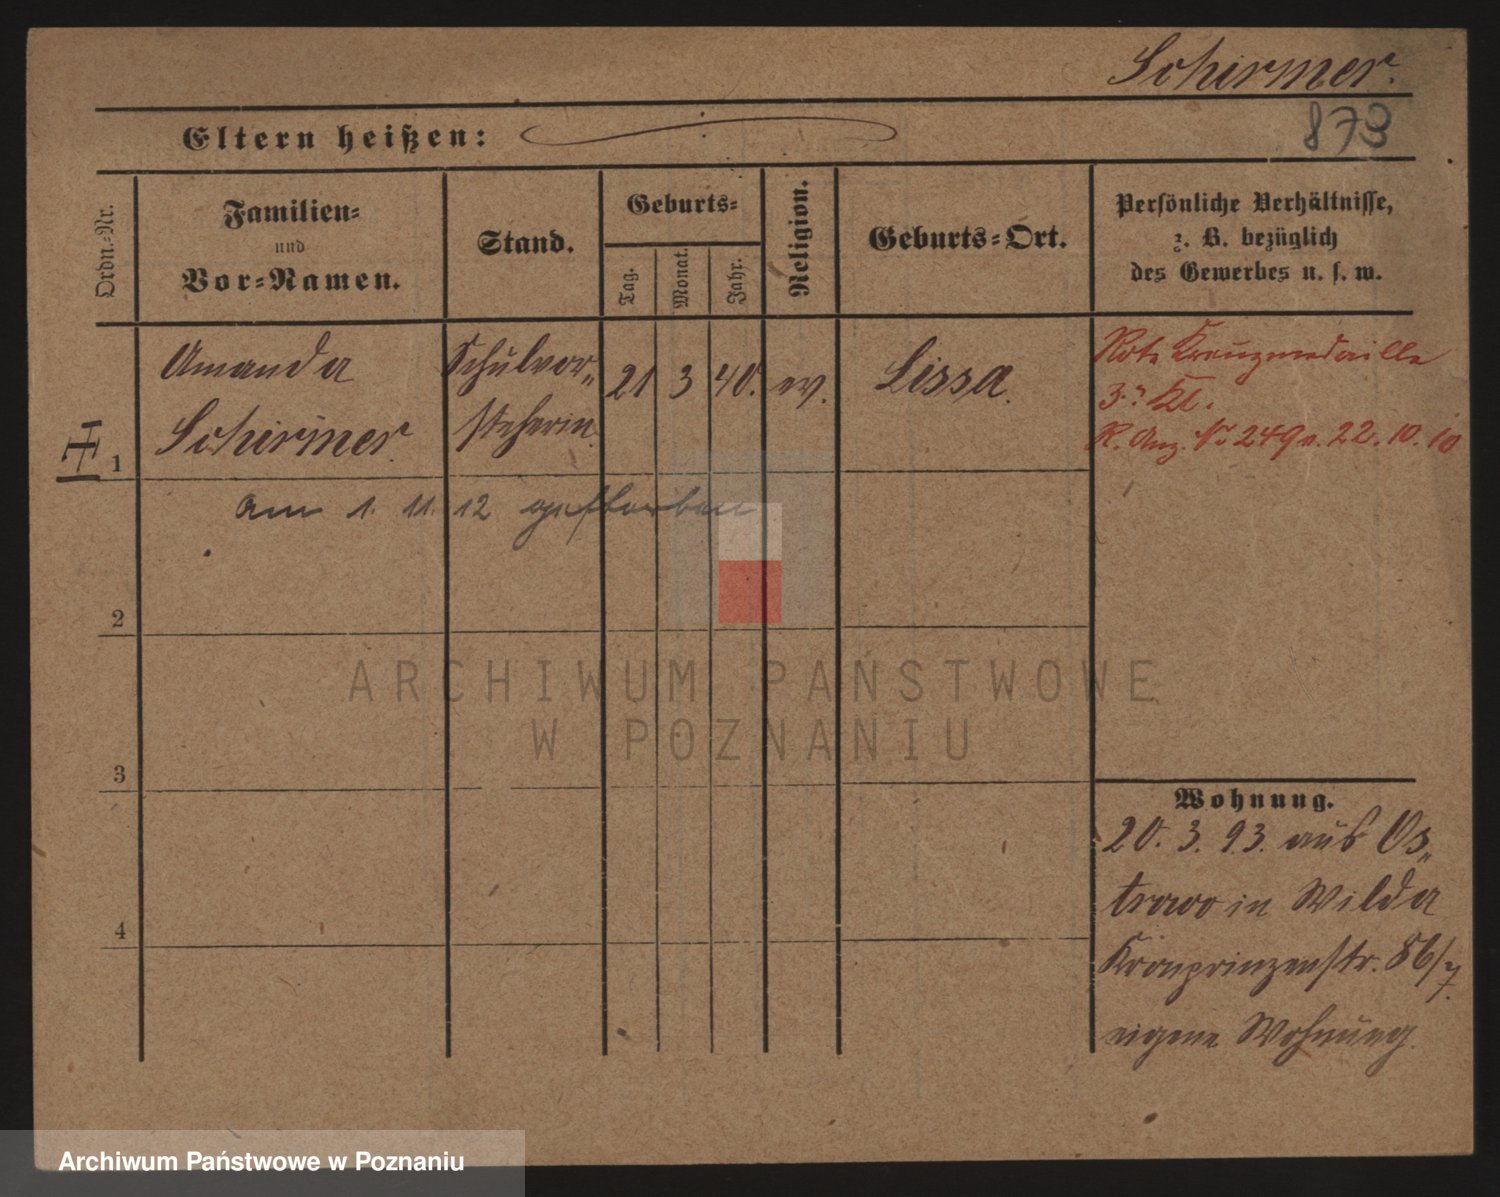 Schirmer.
873
Eltern heißen:
Ordn.-Nr.
Familien-
und
Vor-Namen.
Stand.
Geburts-
Tag.
Monat.
Jahr.
Religion.
Geburts-Ort.
Persönliche Verhältnisse,
z. B. bezüglich
des Gewerbes u. s. w.
1
Amanda
Schirmer.
Schulvor-
steherin.
21
3
40.
ev.
Lissa.
Rote Kreuzmedaille
3. Kl.
R. Anz. Nr 249 v. 22.10.10
am 1. 11. 12 gestorben
2
3
4
Wohnung.
20. 3. 93. aus Os-
trowo in Wilda
Kronprinzenstr. 86/7.
eigene Wohnung.
ARCHIWUM PAŃSTWOWE
W POZNANIU
Archiwum Państwowe w Poznaniu